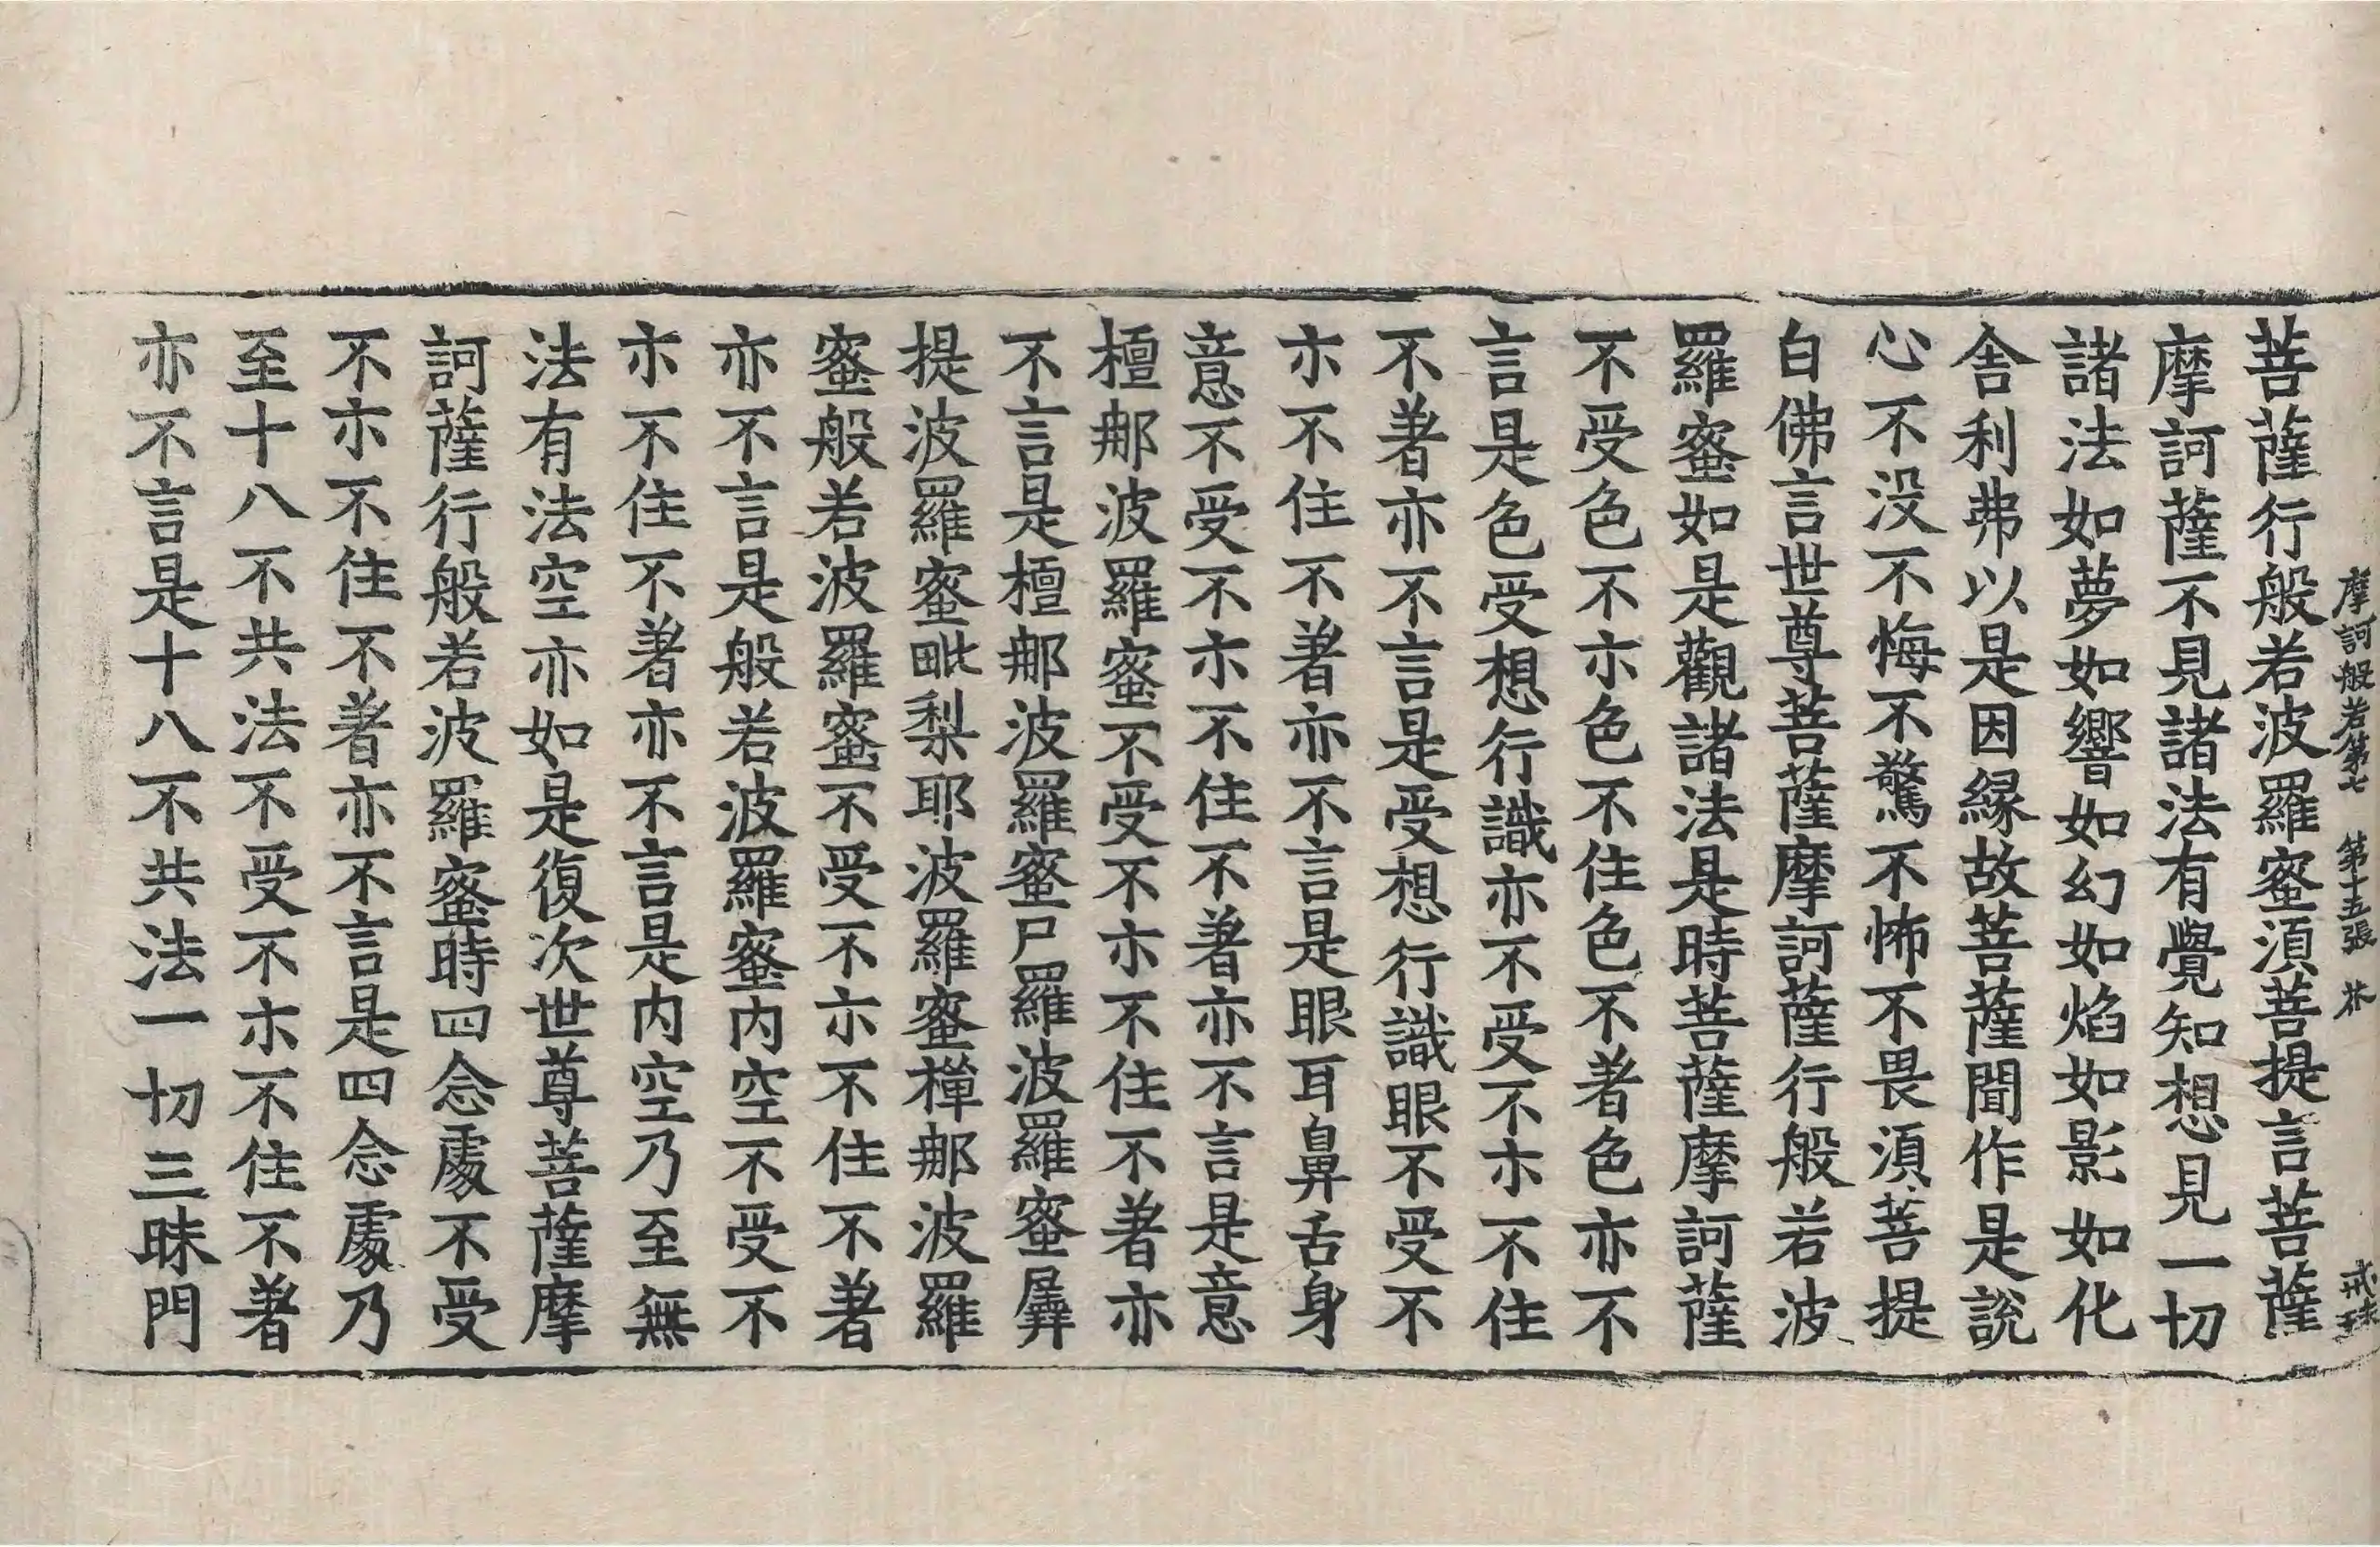 摩訶般若第七　第十五張　芥　戒珠
菩薩行般若波羅蜜須菩提言菩薩
摩訶薩不見諸法有覺知想見一切
諸法如夢如響如幻如焰如影如化
舍利弗以是因縁故菩薩聞作是說
心不没不悔不驚不怖不畏須菩提
白佛言世尊菩薩摩訶薩行般若波
羅蜜如是觀諸法是時菩薩摩訶薩
不受色不示色不住色不著色亦不
言是色受想行識亦不受不示不住
不著亦不言是受想行識眼不受不
示不住不著亦不言是眼耳鼻舌身
意不受不示不住不著亦不言是意
檀那波羅蜜不受不示不住不著亦
不言是檀那波羅蜜尸羅波羅蜜羼
提波羅蜜毗梨耶波羅蜜禪那波羅
蜜般若波羅蜜不受不示不住不著
亦不言是般若波羅蜜内空不受不
示不住不著亦不言是内空乃至無
法有法空亦如是復次世尊菩薩摩
訶薩行般若波羅蜜時四念處不受
不示不住不著亦不言是四念處乃
至十八不共法不受不示不住不著
亦不言是十八不共法一切三昧門